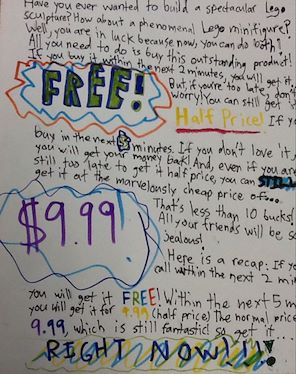 Have you ever wanted to build a spectacular Lego
sculpture? How about a phenomenal Lego minifigure?
Well, you are in luck because now, you can do both!
All you need to do is buy this outstanding product!
If you buy it within the next 2 minutes, you will get it
FREE!
But, if you're too late, don't
worry! You can still get it
Half Price! If you
buy in the next 5 minutes. If you don't love it,
you will get your money back! And, even if you are
still too late to get it half price, you can STILL
get it at the marvelously cheap price of...
$9.99!
That's less than 10 bucks!
All your friends will be so
jealous!
Here is a recap: If you
call within the next 2 min
you will get it FREE! Within the next 5 m
you will get it for (half price) The normal price
9.99, which is still fantastic! So get it...
RIGHT NOW!!!!